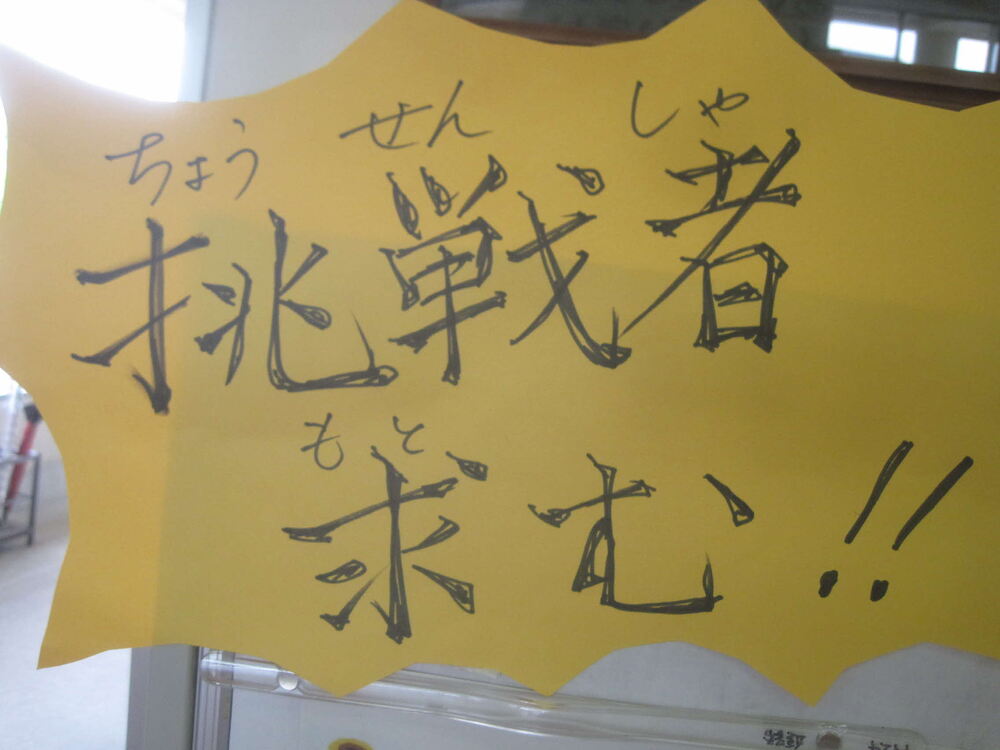 ちょう せん しゃ
挑戦者
もと
求む!!